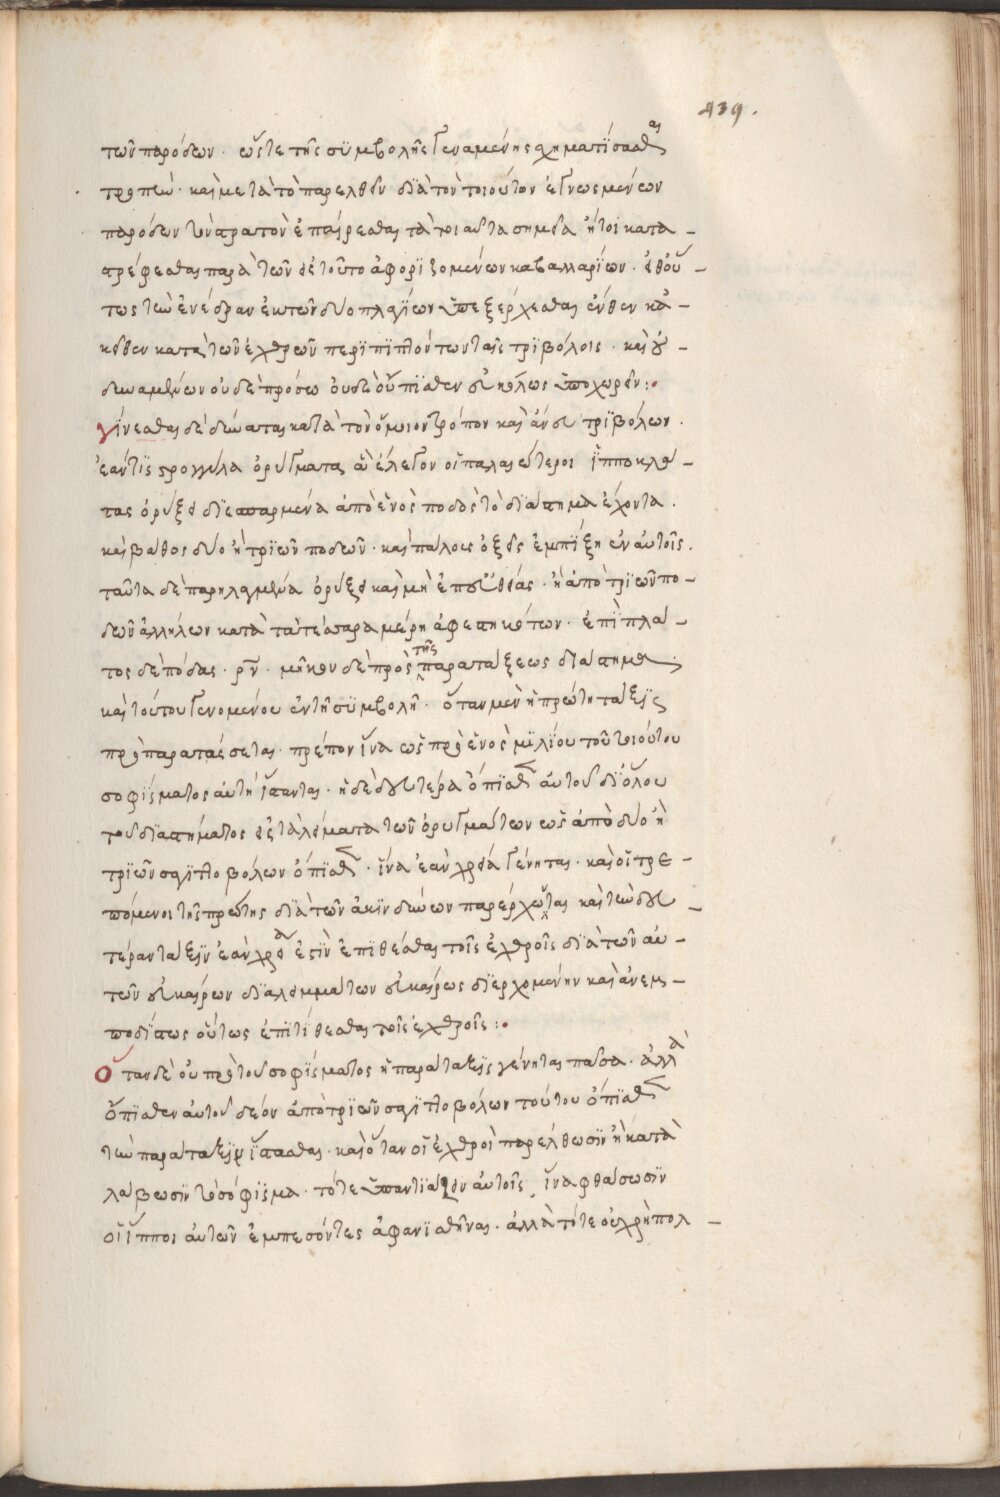 439.
τῶν παρόδων. ὥστε τῆς συμβολῆς γεναμένης σχηματίσασθαι
τροπήν. καὶ μετὰ τὸ παρελθεῖν διὰ τὸν τοιοῦτον ἐγνωσμένων
παρόδων τὸν στρατὸν ἐπαίρεσθαι τὰ τοιαῦτα σημεῖα ἤτοι κατα-
στρέφεσθαι παρὰ τῶν εἰς τοῦτο ἀφοριζομένων καβαλλαρίων. ἐθ' οὕ-
τως τὴν ἐνέδραν ἐκ τῶν δύο πλαγίων ὑπεξέρχεσθαι ἔνθεν κἀ-
κεῖθεν κατὰ τῶν ἐχθρῶν περιπιπτόντων ταῖς τριβόλοις. καὶ οὐ
δυναμένων οὐδὲ πρόσω οὐδὲ ὄπισθεν εὐκόλως ὑποχωρεῖν:
γίνεσθαι δὲ δύναται κατὰ τὸν ὅμοιον τρόπον καὶ ἄνευ τριβόλων.
ἐάν τις στρογγύλα ὀρύγματα ἃ ἔλεγον οἱ παλαιώτεροι ἱπποκλά-
στας ὀρύξει διεσπαρμένα ἀπὸ ἑνὸς ποδὸς τὸ διάστημα ἔχοντα.
καὶ βάθος δύο ἢ τριῶν ποδῶν. καὶ πάλους ὀξεῖς ἐμπήξῃ ἐν αὐτοῖς.
ταῦτα δὲ παρηλλαγμένα ὀρύξει καὶ μὴ ἐπ' εὐθείας. ἢ ἀπὸ τριῶν πο-
δῶν ἀλλήλων κατὰ τὰ τέσσαρα μέρη ἀφεστηκότων. ἐπὶ πλά-
τος δὲ πόδας. ρν. μῆκον δὲ πρὸς τῆς παρατάξεως διάστημα.
καὶ τούτου γενομένου ἐν τῇ συμβολῇ. ὅταν μὲν ἡ πρώτη τάξις
προπαρατάσσεται. πρέπον ἵνα ὡς πρὸ ἑνὸς μιλίου τοῦ τοιούτου
σοφίσματος αὐτὴ ἵσταται. ἡ δὲ δευτέρα ὄπισθεν αὐτοῦ δι' ὅλου
τοῦ διαστήματος εἰς τὰ λείματα τῶν ὀρυγμάτων ὡς ἀπὸ δύο ἢ
τριῶν σαγιττοβόλων ὄπισθεν. ἵνα ἐὰν χρεία γένηται. καὶ οἱ τρε-
πόμενοι τῆς πρώτης διὰ τῶν ἀκινδύνων παρέρχωνται καὶ τὴν δευ-
τέραν τάξιν ἐὰν χρεία ἐστὶν ἐπιθέσθαι τοῖς ἐχθροῖς διὰ τῶν αὐ-
τῶν εὐκαίρων διαλειμμάτων εὐκαίρως διερχομένην καὶ ἀνεμ-
ποδίστως οὕτως ἐπιτίθεσθαι τοῖς ἐχθροῖς:
Ὅταν δὲ οὐ πρὸ τοῦ σοφίσματος ἡ παράταξις γένηται πᾶσα. ἀλλὰ
ὄπισθεν αὐτοῦ δέον ἀπὸ τριῶν σαγιττοβόλων τούτου ὄπισθεν
τὴν παράταξιν ἵστασθαι. καὶ ὅταν οἱ ἐχθροὶ παρέλθωσιν ἢ κατα-
λάβωσιν τὸ σόφισμα. τότε ὑπαντιάζειν αὐτοῖς. ἵνα φθάσωσιν
οἱ ἵπποι αὐτῶν ἐμπεσόντες ἀφανισθῆναι. ἀλλὰ τότε οὐ χρὴ πολ-